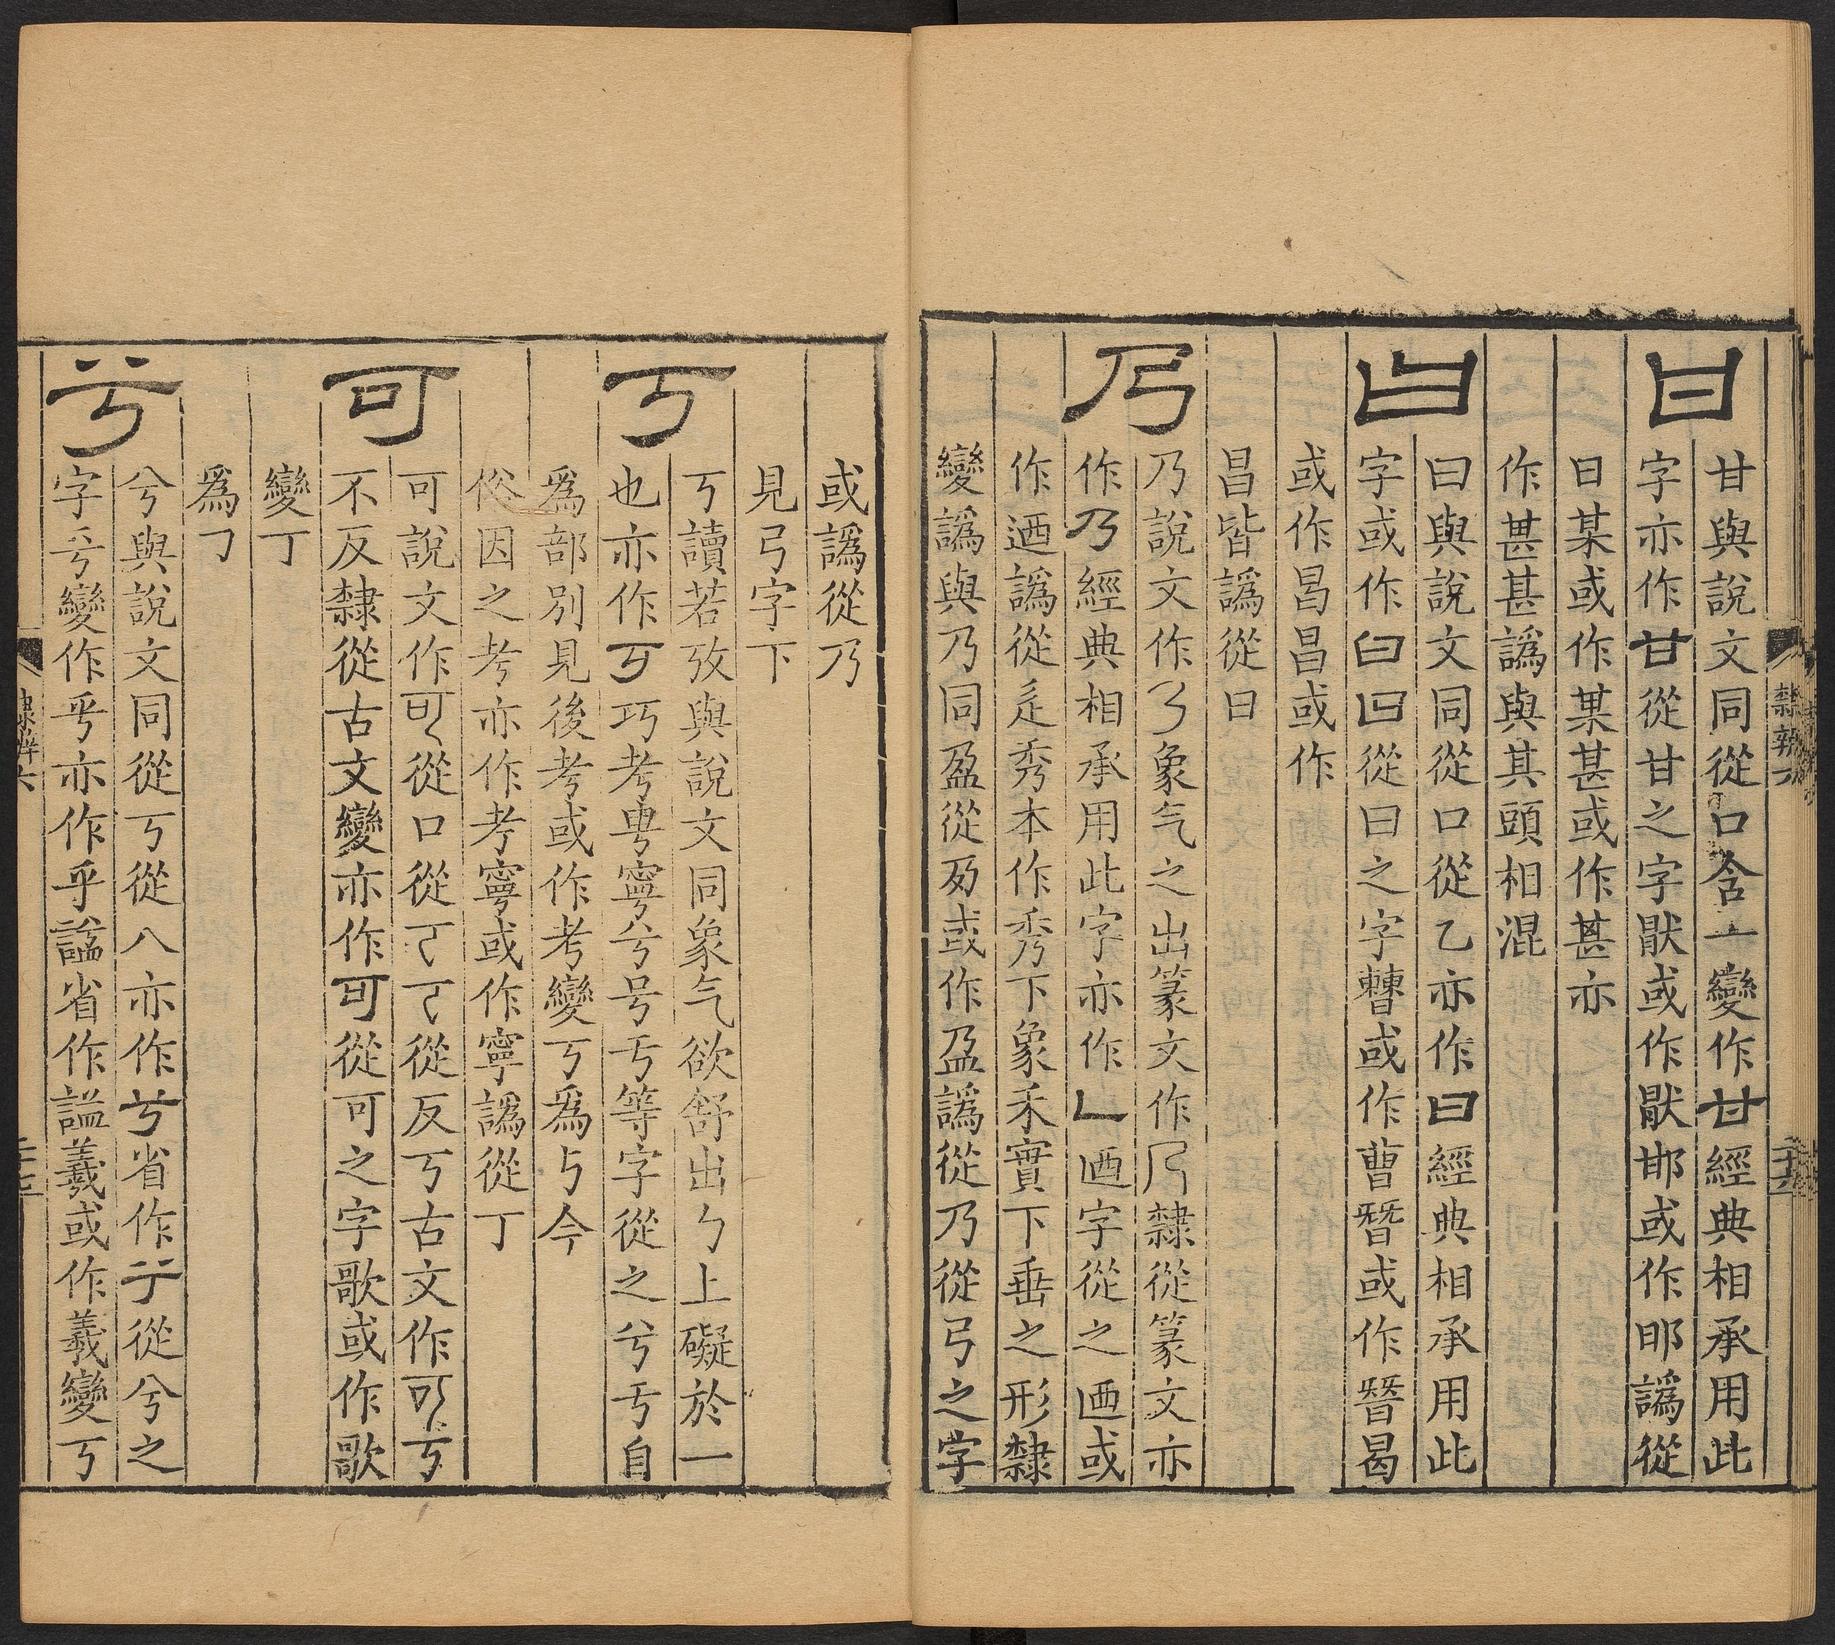 甘
甘與說文同從口含一變作甘經典相承用此
字亦作甘從甘之字猒或作猒邯或作邯譌從
日某或作某甚或作甚亦
作甚甚譌與其頭相混
曰
曰與說文同從口從乙亦作曰經典相承用此
字或作曰曰從曰之字轉或作曹朁或作朁曷
或作昌昌或作
昌皆譌從日
乃
乃說文作乃象气之出篆文作乃隸從篆文亦
作乃經典相承用此字亦作乚迺字從之迺或
作迺譌從辵秀本作秀下象禾實下垂之形隸
變譌與乃同盈從夃或作盈譌從乃從弓之字
或譌從乃
見弓字下
丂
丂讀若攷與說文同象气欲舒出勹上礙於一
也亦作丂巧考甹寧兮号亏等字從之兮亏自
爲部別見後考或作考變丂爲与今
俗因之考亦作考寧或作寧譌從丁
可
可說文作可從口從𠀀𠀀從反丂古文作可丂
不反隸從古文變亦作可從可之字歌或作歌
變丁
爲㇆
兮
兮與說文同從丂從八亦作兮省作亍從兮之
字乎變作乎亦作乎謚省作謚羲或作羲變丂
隸辨六
二十六
隸辨六
二十七